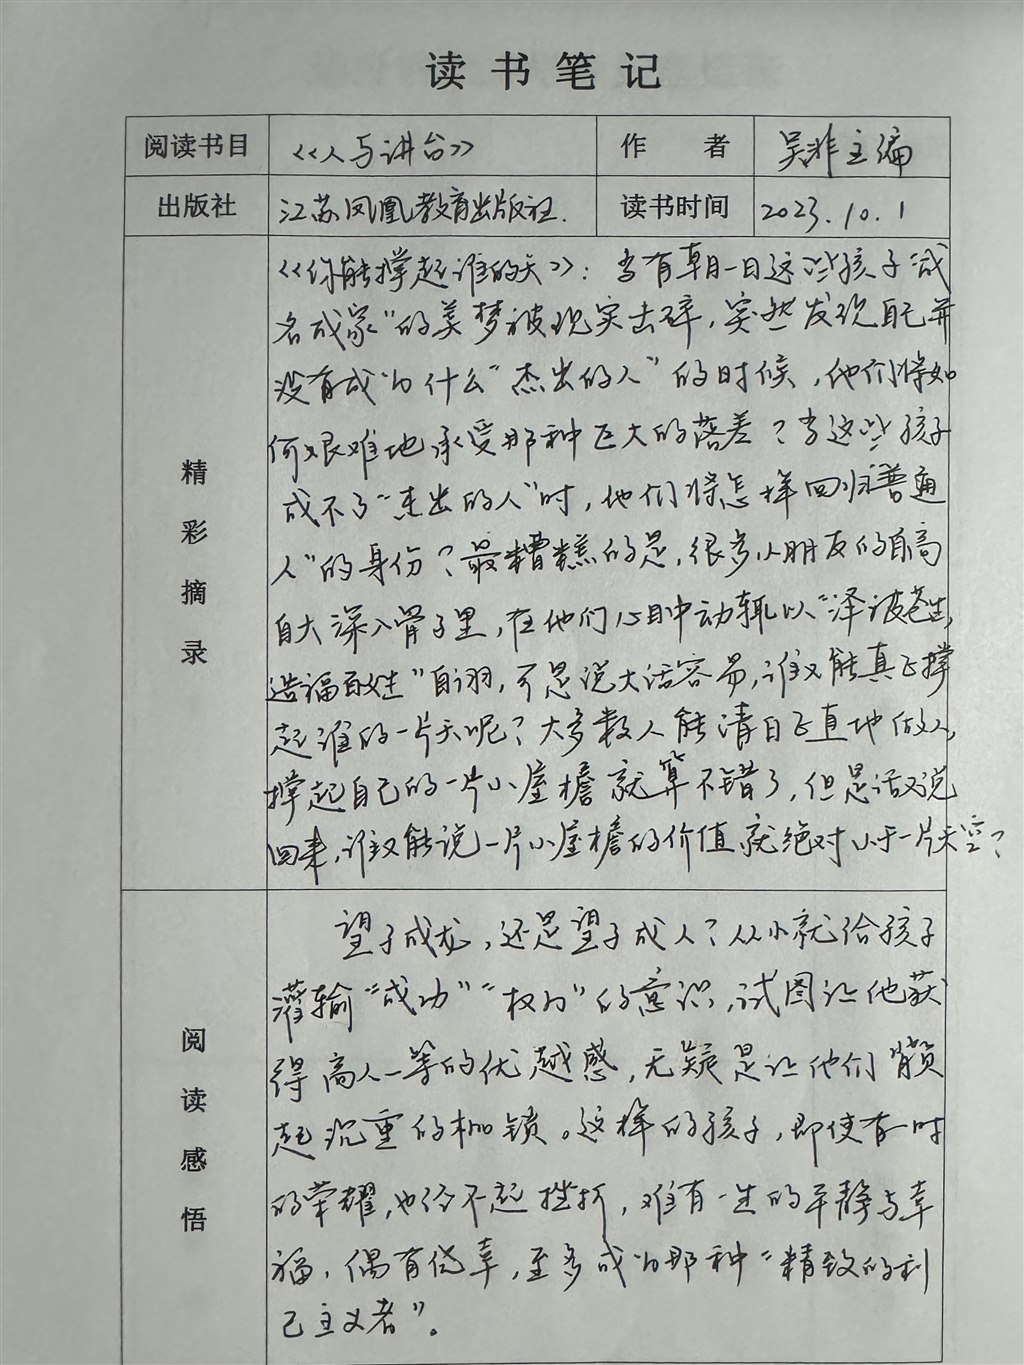 读书笔记
阅读书目 《人与讲台》 作者 吴非主编
出版社 江苏凤凰教育出版社. 读书时间 2023.10.1
精彩摘录
《你能撑起谁的天》：当有朝一日这些孩子“成
名成家”的美梦被现实击碎，突然发现自己并
没有成为什么“杰出的人”的时候，他们将如
何艰难地承受那种巨大的落差？当这些孩子
成不了“杰出的人”时，他们将怎样回归“普通
人”的身份？最糟糕的是，很多小朋友的自高
自大深入骨子里，在他们心目中动辄以“泽被苍生，
造福百姓”自诩，可是说大话容易，谁又能真正撑
起谁的一片天呢？大多数人能清白正直地做人，
撑起自己的一片小屋檐就算不错了，但是话又说
回来，谁又能说一片小屋檐的价值就绝对小于一片天空？
阅读感悟
望子成龙，还是望子成人？从小就给孩子
灌输“成功”“权力”的意识，试图让他获
得高人一等的优越感，无疑是让他们背负
起沉重的枷锁。这样的孩子，即使有一时
的荣耀，也经不起挫折，难有一生的平静与幸
福，偶有侥幸，至多成为那种“精致的利
己主义者”。